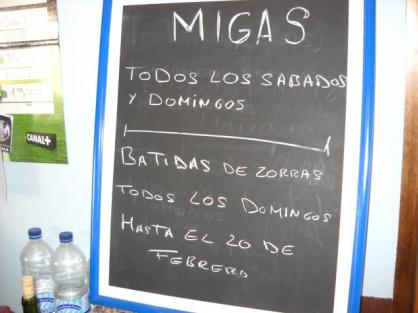 MIGAS
TODOS LOS SABADOS
Y DOMINGOS
BATIDAS DE ZORRAS
TODOS LOS DOMINGOS
HASTA EL 20 DE
FEBRERO
CANAL+